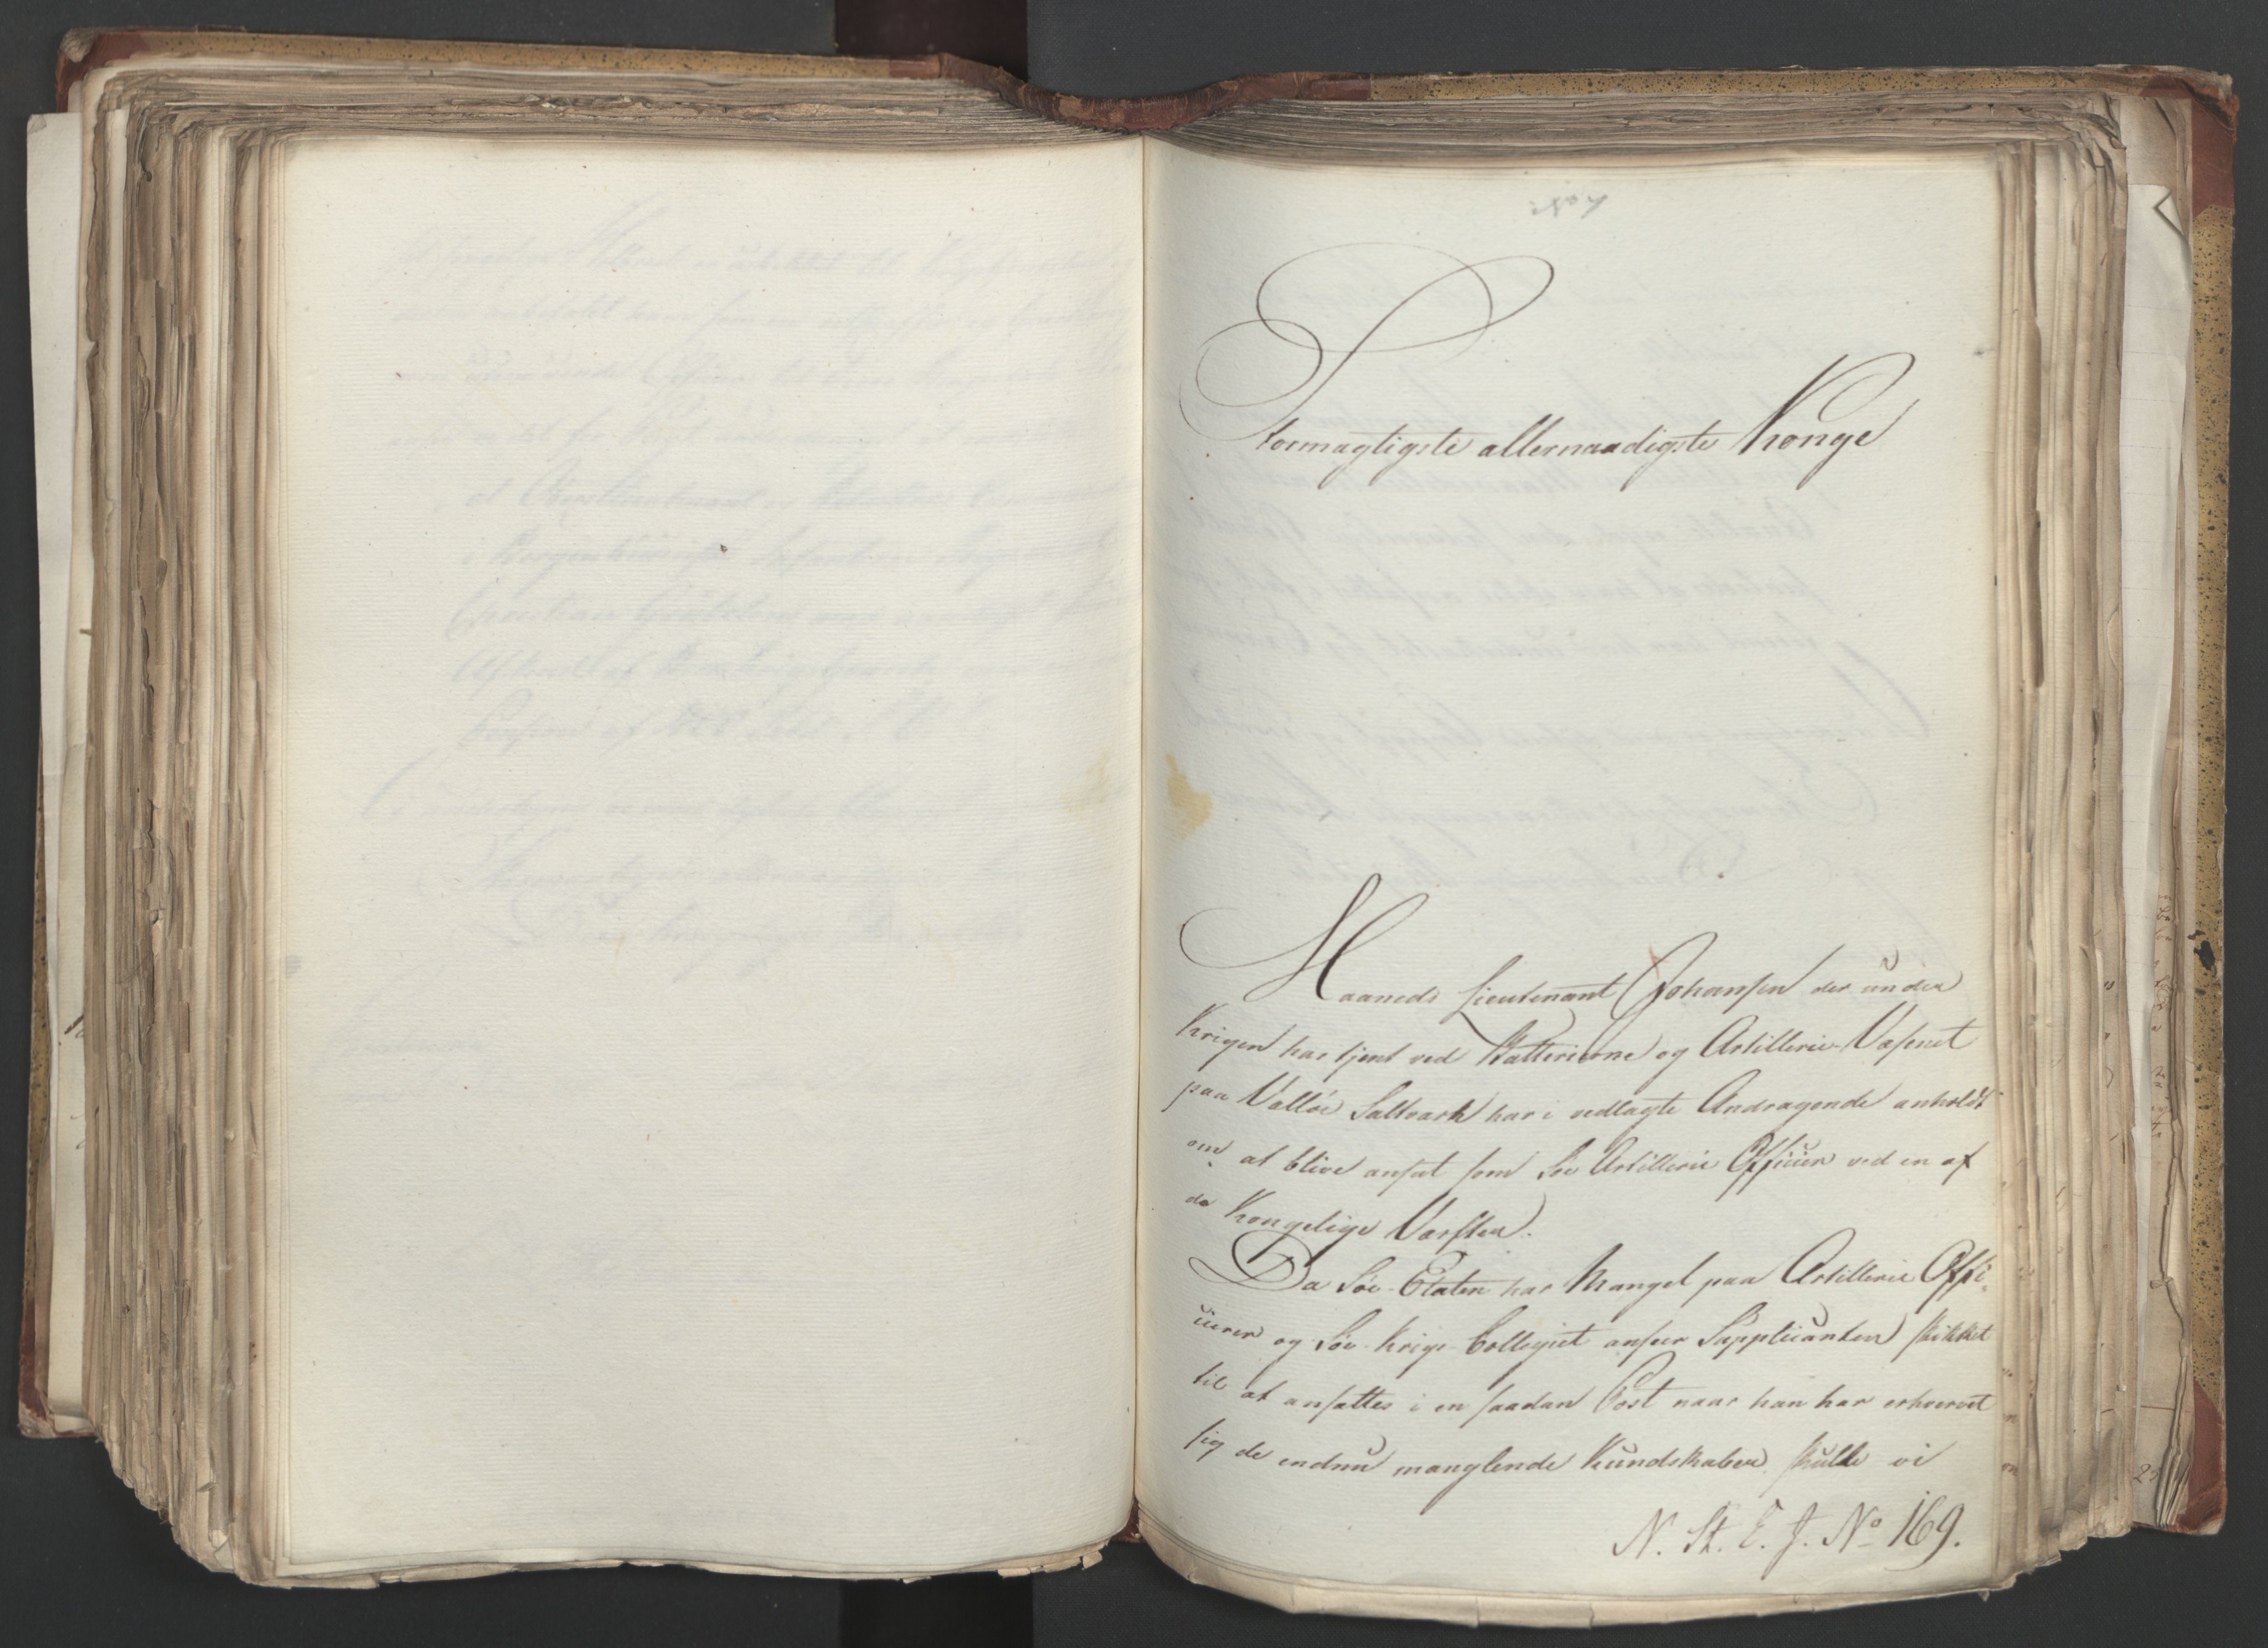 No 7
Stormægtigste allernaadigste Konge
Maaneds Lieutenant Johansen der under
Krigen har tjent ved Batterierne og Artillerie-Væsenet
paa Valløe Saltværk har i vedlagte Andragende anholdt
om at blive ansat som Søe Artillerie Officier ved en af
de Kongelige Værfter.
Da Søe-Etaten har Mangel paa Artillerie Offi-
cierer og Søe-Krigs-Collegiet anseer Supplicanten skikket
til at ansættes i en saadan Post naar han har erhvervet
sig de endnu manglende Kundskaber, skulle vi
N. St. E. J. No 169.